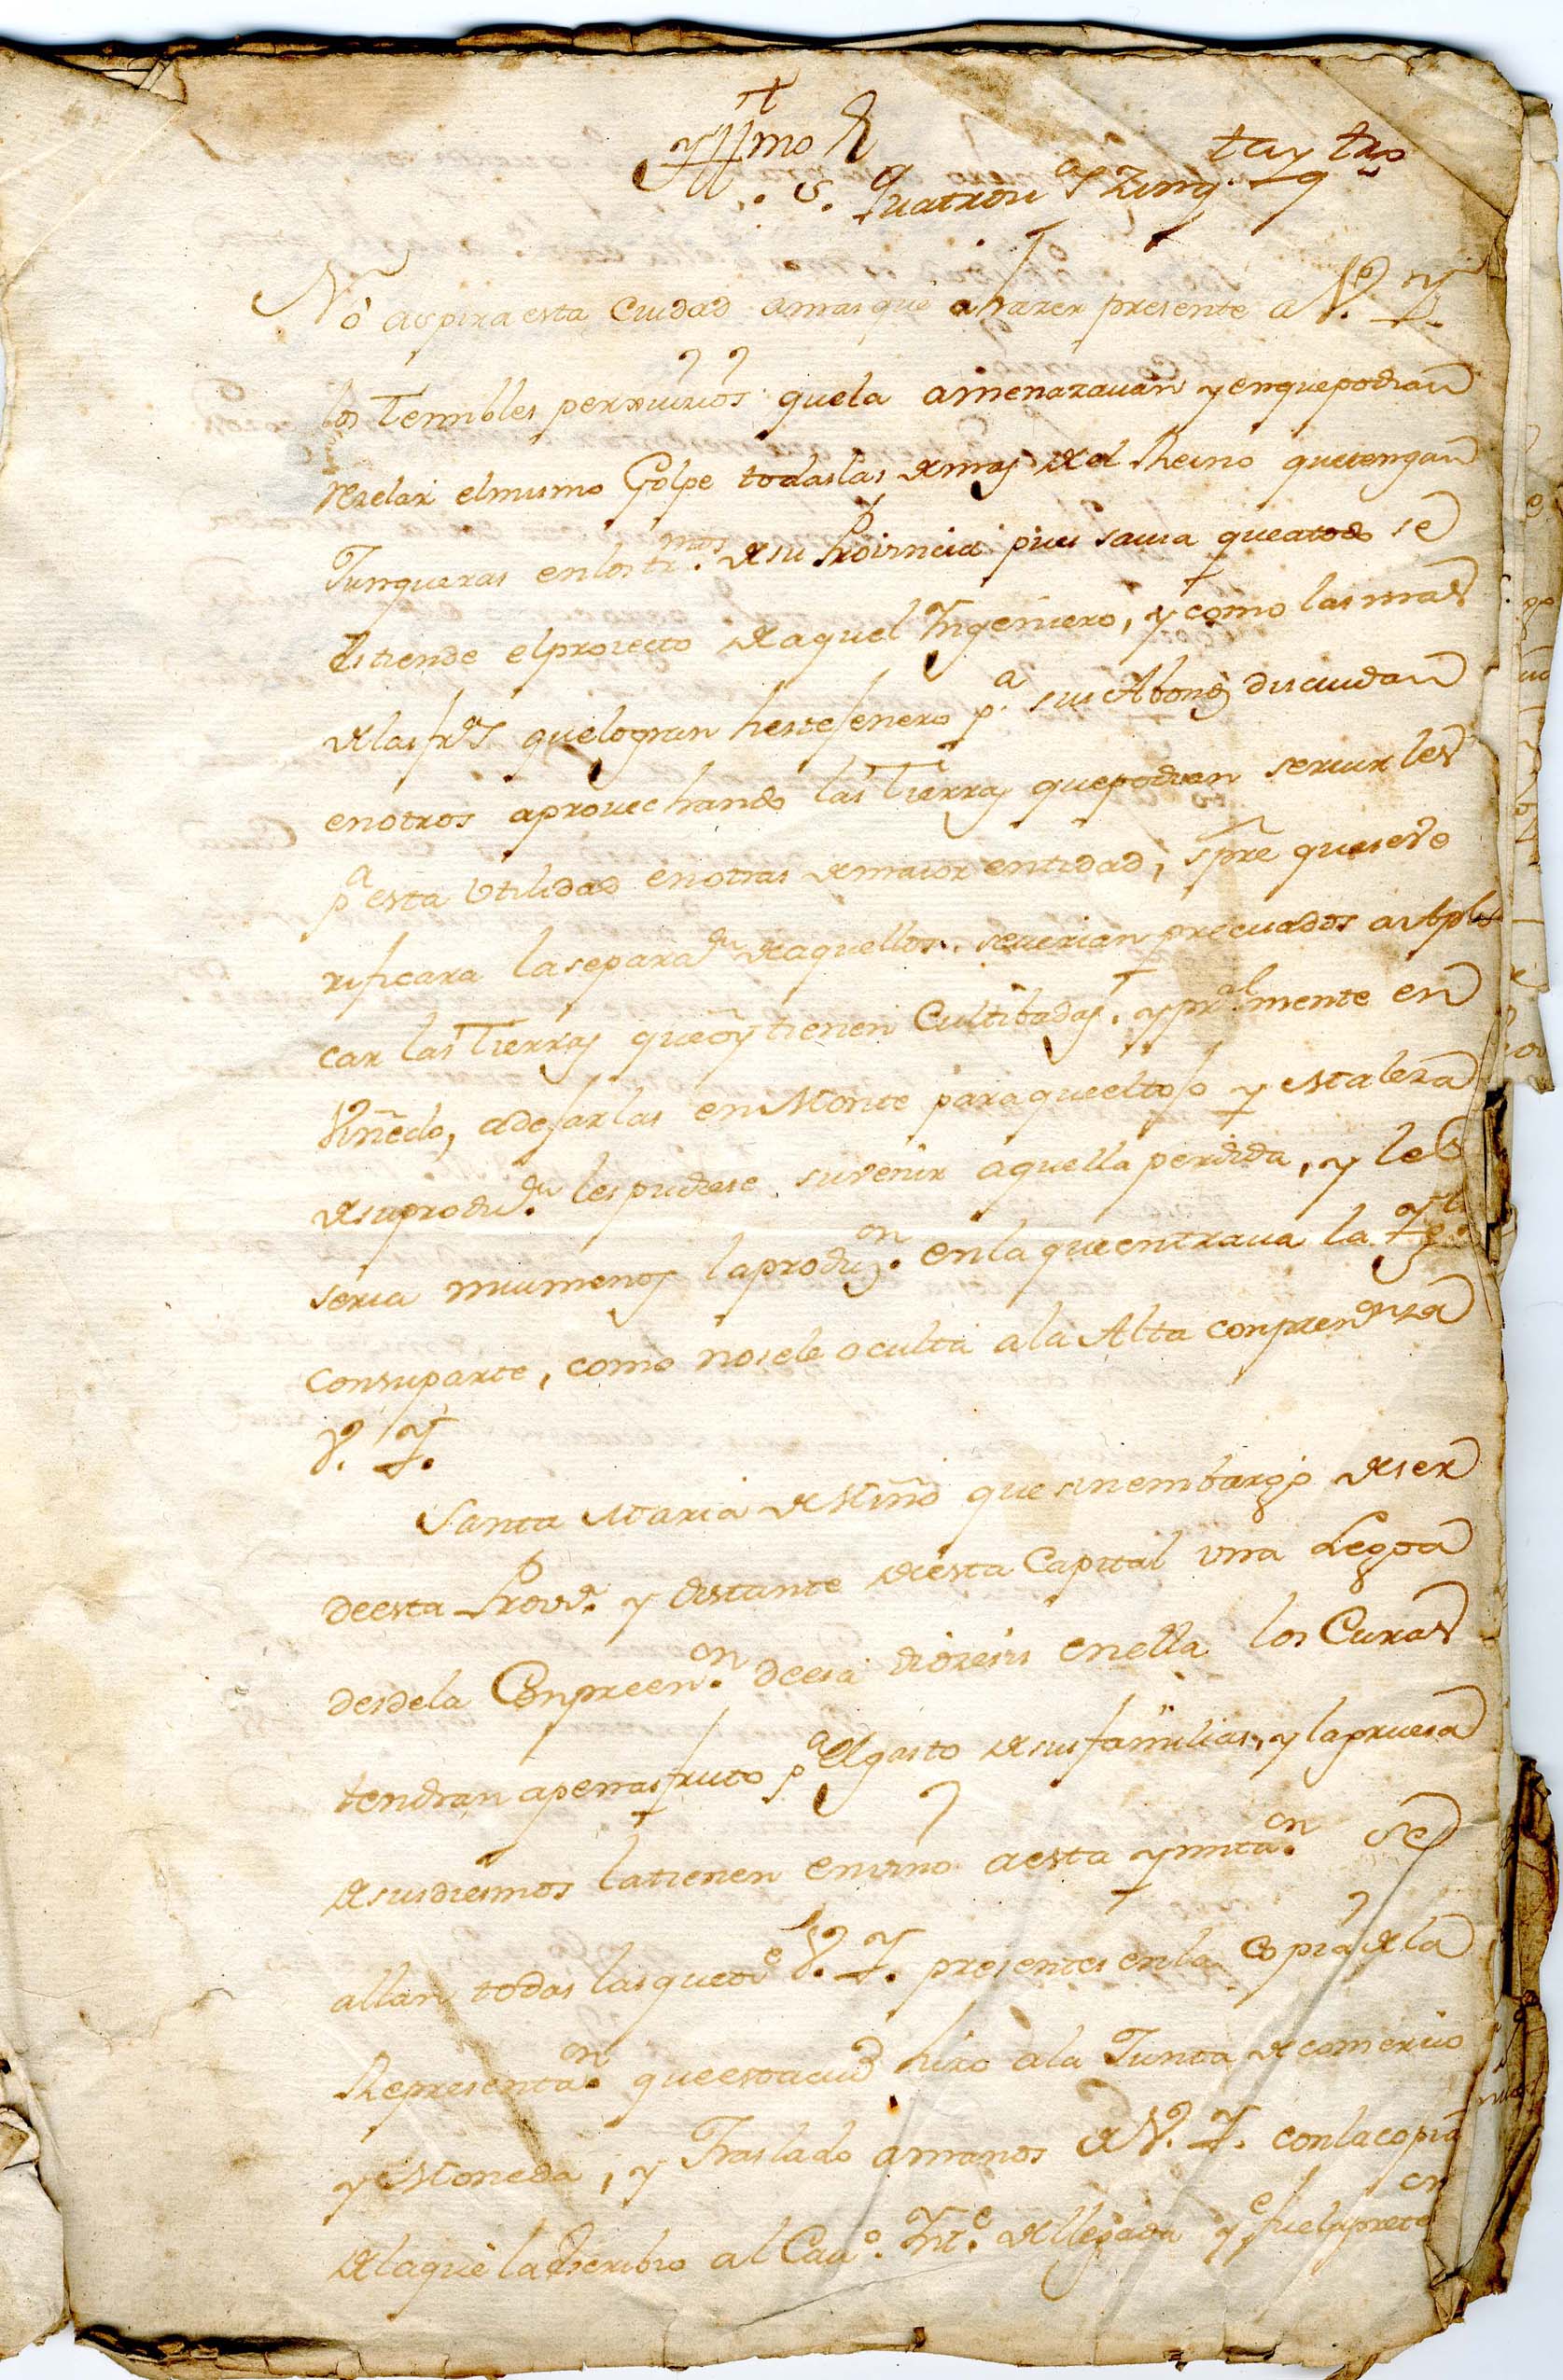 Yllmo S.
S. Quatrou
No aspira esta Ciudad amas que a hazer presente a V. Y.
los Terribles perxuicios quela amenazauan y enque podian
rezelar elmismo Golpe todaslas demas del Reino quetengan
Junqueras enlos trmos. desu Proivncia pues savia queatodo se
Estiende elproiecto deaquel Ingeniero, y como las mas
delas fras quelogran heste jenero pa. sus Abonos discuidan
enotros aprouechando las Tierras quepodian seruirles
pa esta Utilidad enotras demaior entidad, spre quese ve
rificara lasepara deaquellos severian precisados a Apli
car las Tierras queoy tienen Cultibadas. ypralmente en
Viñedo, adejarlas en Monte paraqueeltojo y estaleza
desuprodu les pudiese suvenir aquella perdida, y les
seria mui menos laproduzon. enla queentraua la Ygla.
consuparte, como nosele oculta ala Alta conprenza
V. Y.
Santa Maria de Miño que sinembargo deser
deesta Prova. y distante deesta Capital vna Legoa
desdela Conpreenon. deesa diozesis enella los Curas
tendran apenasfruto pa elgasto desusfamilias, y laprueua
desusdiesmos latienen envino aesta ymitaon. se
allan todas lasquetoe V. Y. presentes enla Copia dela
Representaon. queestaciud hizo ala Junta decomercio
y Moneda, y Traslado amanos de V. Y. conlacopia
delaque la Escribio al Cauo. Inte. dellegada